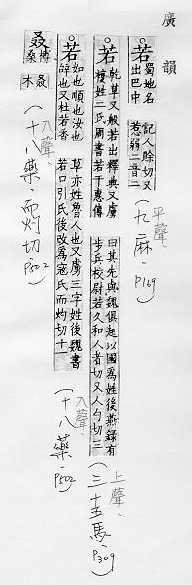 廣韻
若 蜀地名出巴中 記人賒切又惹弱二音二
(九麻. P169)
平聲、
若 乾草又般若出釋典又虜複姓二氏周書若干惠傳
曰其先與魏俱起以國為姓後燕錄有步兵校尉若久和人者切又人勺切三
(三十五馬、P309)
上聲、
若 如也順也汝也辝也又杜若香
草亦姓魯人也又虜三字姓後魏書若口引氏後改為寇氏而灼切十一
(十八藥. P502)
入聲、
叒 榑桑叒木
(十八藥. 而灼切. P502)
入聲